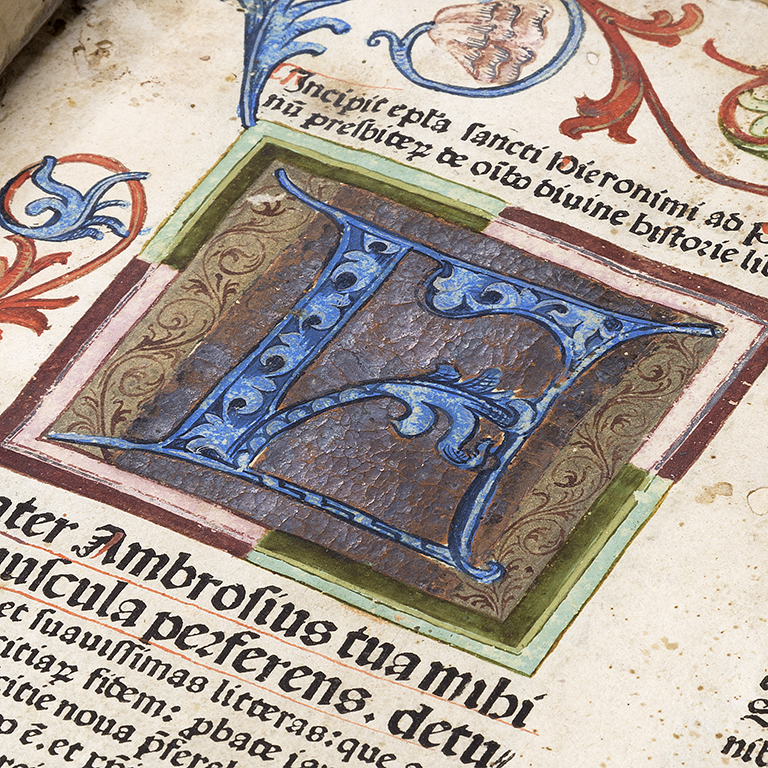 Incipit epl̄a sancti Hieronimi ad p
nū presbiteꝝ de oīb᷒ divine historie lib
F
ater Ambrosius tua mihi
uscula perferens. detu
et suavissimas litteras: que a
citiaꝝ fidem: ꝓbate iam
citie noua
ō ē. et